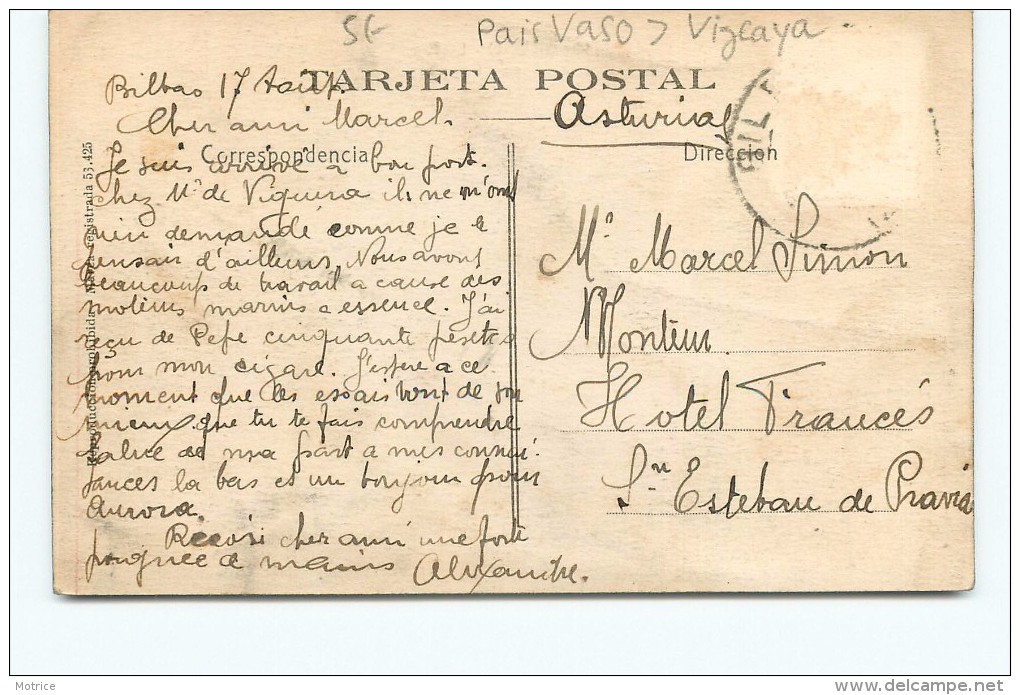 5€ Pais Vaso > Vizcaya
TARJETA POSTAL
Bilbao 17 Août
Cher ami Marcel.
Asturias
Correspondencia
Dirección
BIL
Je suis arrivé à bon port.
chez Mr de Viguera ils ne m'ont
rien demandé comme je le
pensais d'ailleurs, Nous avons
beaucoups de travail a cause des
moteurs marins a essence. J'ai
reçu de Pepe cinquante pesetas
pour mon cigare. J'espère a ce
moment que les essais vont de
mieux que tu te fais comprendre
salue de ma part a mes connai
sances la bas et un bonjour pour
Aurora.
Recois cher ami une forte
poignee de mains Alexandre.
Mr Marcel Simon
Monteur
Hotel Francés
Sn Esteban de Pravia
Reproducción prohibida Marca registrada 53.425
Motrice
delcampe.net